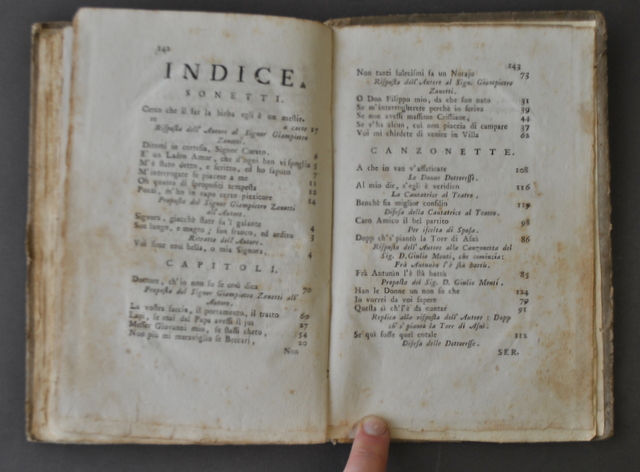 142
INDICE.
SONETTI.
Certo che il far la birba egli è un mestie-
ro a carte 17
Risposta dell'Autore al Signor Giampietro
Zanetti.
Ditemi in cortesia, Signor Curato. 6
E' un Ladro Amor, che d'ogni ben vi spoglia 5
M'è stato detto, e scritto, ed ho saputo 7
M'interrogate se piacere a me 11
Oh quanto di spropositi tempesta 12
Poffar, m'ho in capo certo pizzicore 14
Proposta del Signor Giampietro Zanetti
all'Autore.
Signora, giacchè state sù 'l galante 4
Son lungo, e magro; son franco, ed ardito 3
Ritratto dell'Autore.
Voi siete una bella, o mia Signora, 4
CAPITOLI.
Dottore, ch'io non so se svoi dica 70
Proposta del Signor Giampietro Zanetti all'
Autore.
La vostra faccia, il portamento, il tratto 60
Lapi, se mai dal Papa avessi il jus 27
Messer Giovanni mio, se stassi cheto, 54
Non più mi maraviglio se Beccari, 20
Non
143
Non tanti salecismi fa un Notajo 73
Risposta dell'Autore al Sig. Giampietro
Zanetti.
O Don Filippo mio, da che son nato 31
Se m'interrogherete perchè io scriva 39
Se non avessi massime Cristiane, 44
Se v'ha alcun, cui non piaccia di campare 37
Voi mi chiedete di venire in Villa 62
CANZONETTE.
A che in van v'affaticate 108
Le Donne Dottoresse.
Al mio dir, s'egli è veridico 116
La Cantatrice al Teatro.
Benchè sia miglior consiglio 119
Difesa della Cantatrice al Teatro.
Caro Amico il bel partito 98
Per iscelta di Sposa.
Dopp ch's'piantò la Torr di Asnì 86
Risposta dell'Autore alla Canzonetta del
Sig. D. Giulio Monti, che comincia:
Frà Antunin l'è stà battù.
Frà Antunin l'è stà battù 85
Proposta del Sig. D. Giulio Monti.
Han le Donne un non so che 124
Io vorrei da voi sapere 79
Questa sì ch'l'è da cantar 91
Replica alla risposta dell'Autore: Dopp
ch's'piantò la Torr di Asnì.
Se quì fosse quel cotale 112
Difesa delle Dottoresse.
SER.